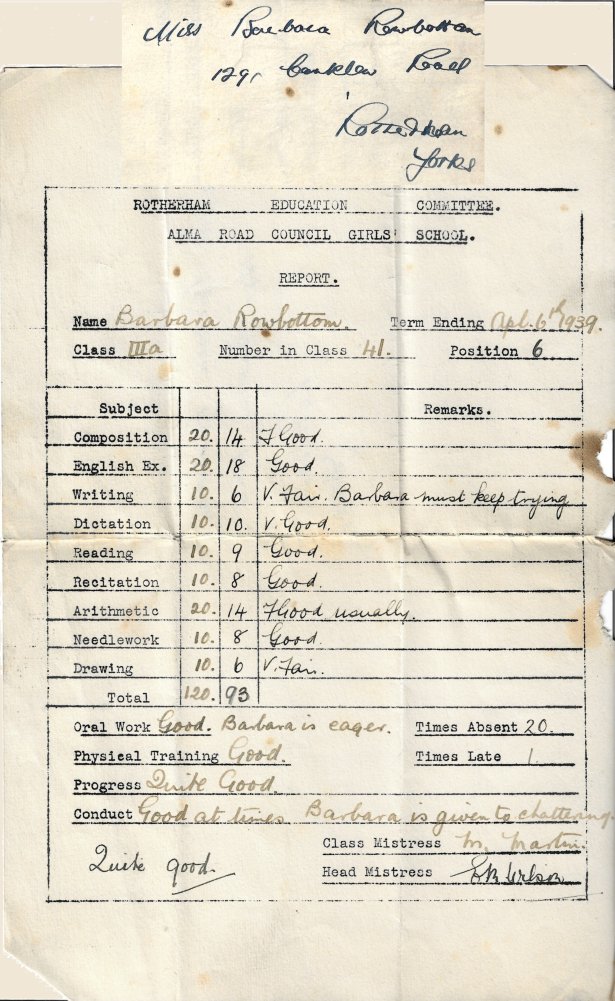 Miss Barbara Rowbottom
129, Canklow Road
Rotherham
Yorks
ROTHERHAM EDUCATION COMMITTEE.
ALMA ROAD COUNCIL GIRLS' SCHOOL.
REPORT.
Name Barbara Rowbottom. Term Ending Apl. 6th 1939.
Class IIIa Number in Class 41. Position 6
Subject Remarks.
Composition 20. 14 F Good.
English Ex. 20. 18 Good.
Writing 10. 6 V. Fair. Barbara must keep trying
Dictation 10. 10. V. Good.
Reading 10. 9 Good.
Recitation 10. 8 Good.
Arithmetic 20. 14 F Good usually.
Needlework 10. 8 Good.
Drawing 10. 6 V. Fair.
Total 120. 93
Oral Work Good. Barbara is eager. Times Absent 20.
Physical Training Good. Times Late 1
Progress Quite Good.
Conduct Good at times. Barbara is given to chattering.
Class Mistress M. Martin.
Quite good.
Head Mistress Wilson